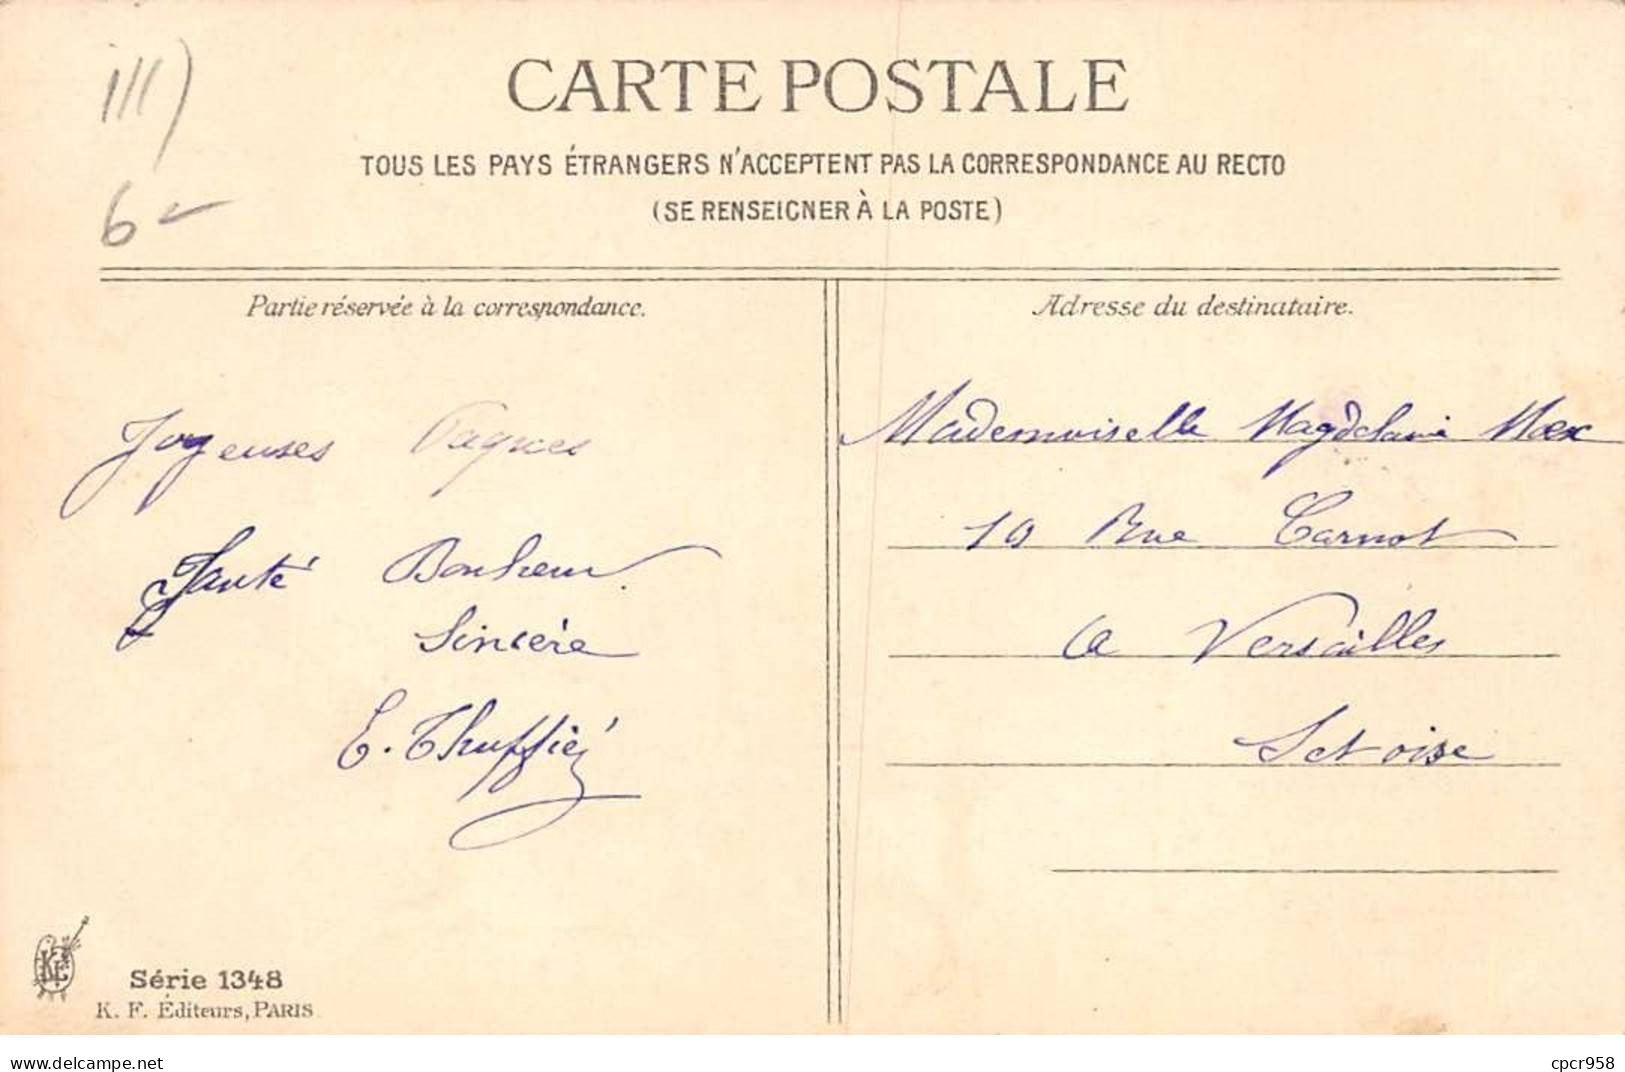 ill)
6-
CARTE POSTALE
TOUS LES PAYS ÉTRANGERS N'ACCEPTENT PAS LA CORRESPONDANCE AU RECTO
(SE RENSEIGNER À LA POSTE)
Partie réservée à la correspondance.
Joyeuses Paques
Santé Bonheur.
Sincère
E. Thuffiéy
Adresse du destinataire.
Mademoiselle Magdelaine
10 Rue Carnot
a Versailles
S et oise
KF
Série 1348
K. F. Éditeurs, PARIS
delcampe.net
cpcr958